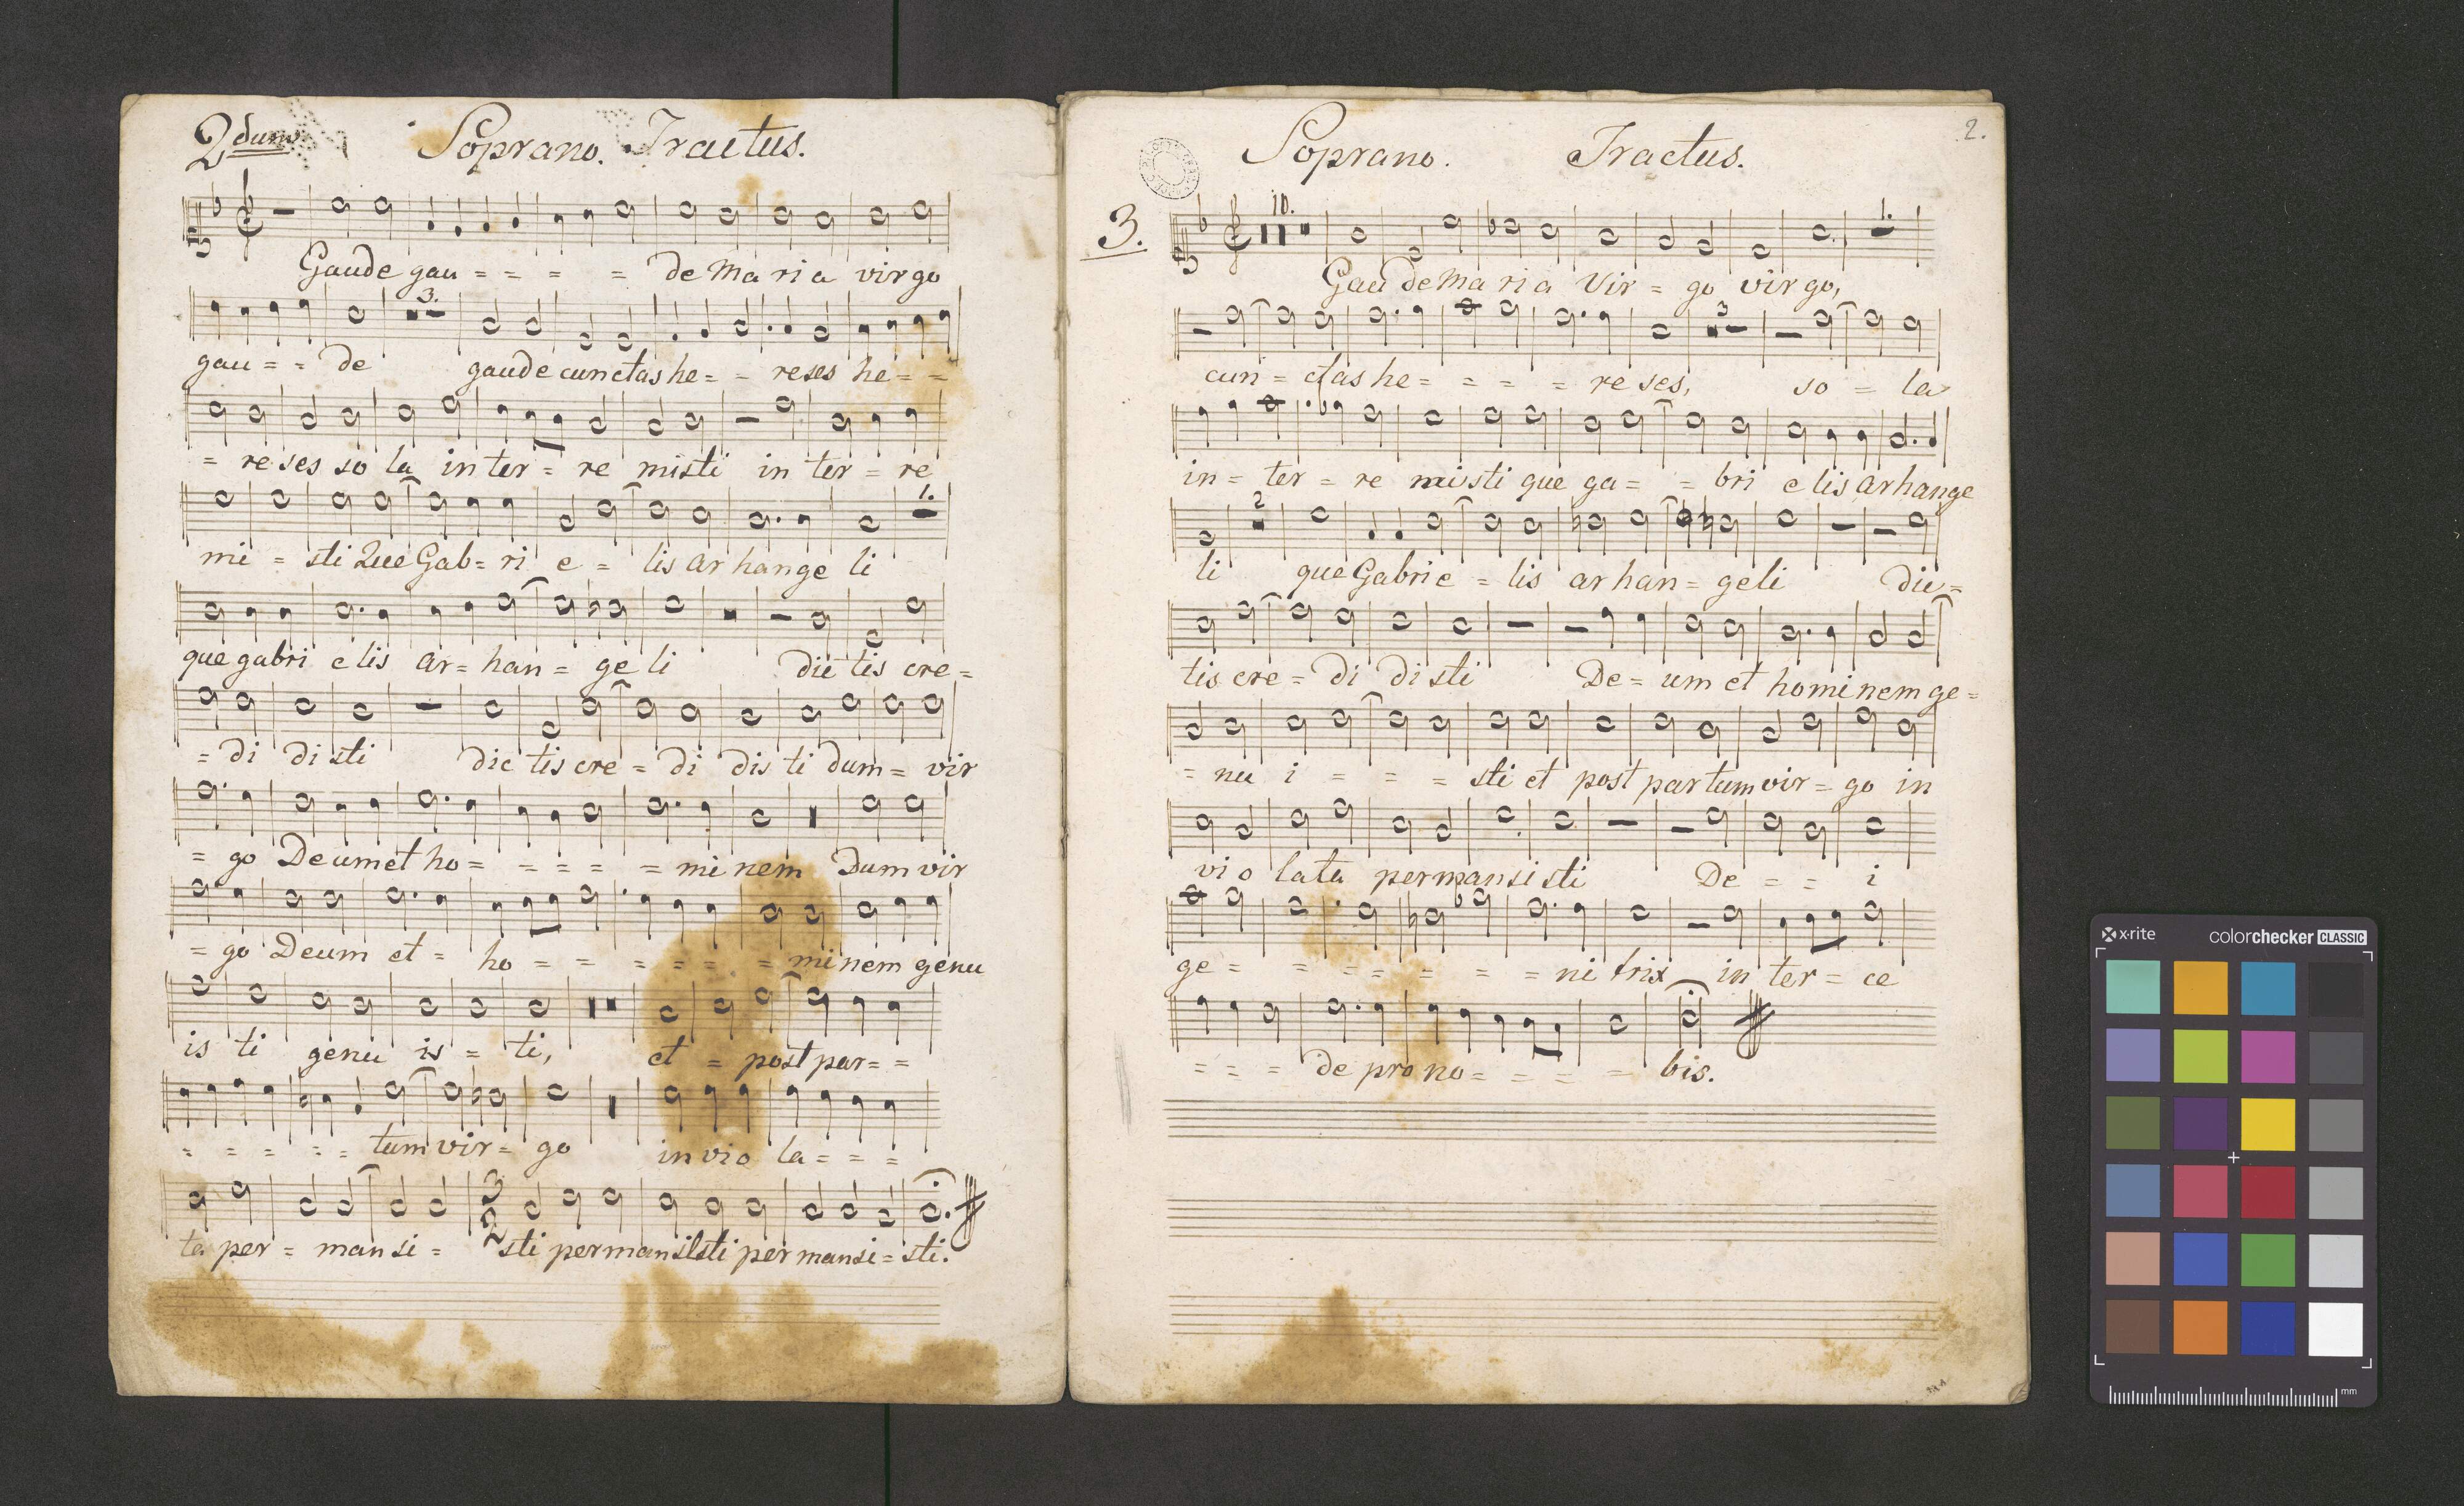 2dum Soprano. Tractus.
Gaude gau = = = = de Maria virgo
3.
gau = = de gaude cunctas he = = reses he = =
= reses sola inter = re misti in ter = re
1.
mi = sti Que Gab = ri e = lis arhange li
que gabri elis ar = han = ge li dietis cre =
= di disti dictis cre = di disti dum = vir
= go Deum et ho = = = = = mi nem Dum vir
= go Deum et = ho = = = = = = minem genu
is ti genu is = ti, et = post par = =
= = = = = tum vir = go in vio la = = =
3
2
ta per = man si = sti permansisti permansi = sti.
2.
Soprano. Tractus.
3.
10.
1.
Gaude Maria Vir = go virgo,
3
cun = ctas he = = = = reses, so = la
in = ter = re misti que ga = = bri elis arhange
2
li que Gabrie = lis arhan = geli die =
tis cre = di disti De = um et hominem ge =
= nu i = = = sti et post partum vir = go in
vio lata permansisti De = = i
ge = = = = = = = ni trix in ter = ce
= = = de pro no = = = = bis.
x·rite colorchecker CLASSIC
mm